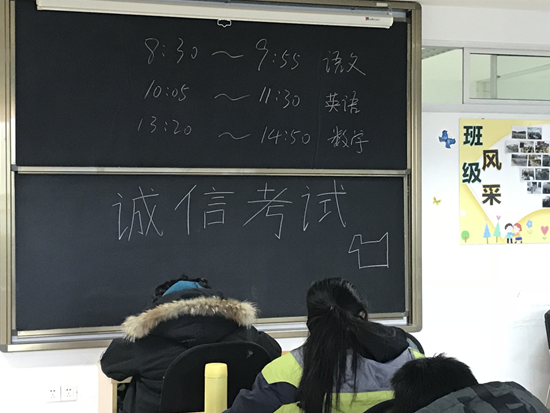 8:30 ～ 9:55 语文
10:05 ～ 11:30 英语
13:20 ～ 14:50 数学
诚信考试
班级
风采